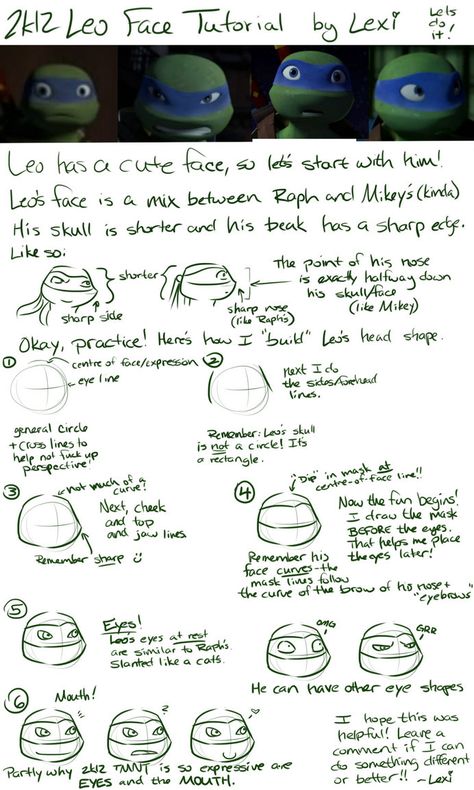 2k12 Leo Face Tutorial by Lexi
Lets do it!
Leo has a cute face, so let's start with him!
Leo's face is a mix between Raph and Mikey's (kinda)
His skull is shorter and his beak has a sharp edge.
Like so:
shorter
sharp side
sharp nose
(like Raph's)
The point of his nose
is exactly halfway down
his skull/face
(like Mikey)
Okay, practice! Here's how I "build" Leo's head shape.
1
centre of face/expression
eye line
general circle
+ cross lines to
help not fuck up
perspective!
2
next I do
the sides/forehead
lines.
Remember: Leo's skull
is not a circle! It's
a rectangle.
3
not much of a
curve!
Next, cheek
and top
and jaw lines.
Remember sharp
4
"Dip" in mask at
centre-of-face line!!
Now the fun begins!
I draw the mask
BEFORE the eyes.
That helps me place
the eyes later!
Remember his
face curves - the
mask lines follow
the curve of the brow of his nose +
"eyebrows"
5
Eyes!
Leo's eyes at rest
are similar to Raph's.
Slanted like a cats.
OMG
GRR
He can have other eye shapes
6
Mouth!
?
Partly why 2k12 TMNT is so expressive are
EYES and the MOUTH.
I hope this was
helpful! Leave a
comment if I can
do something different
or better!! ~Lexi